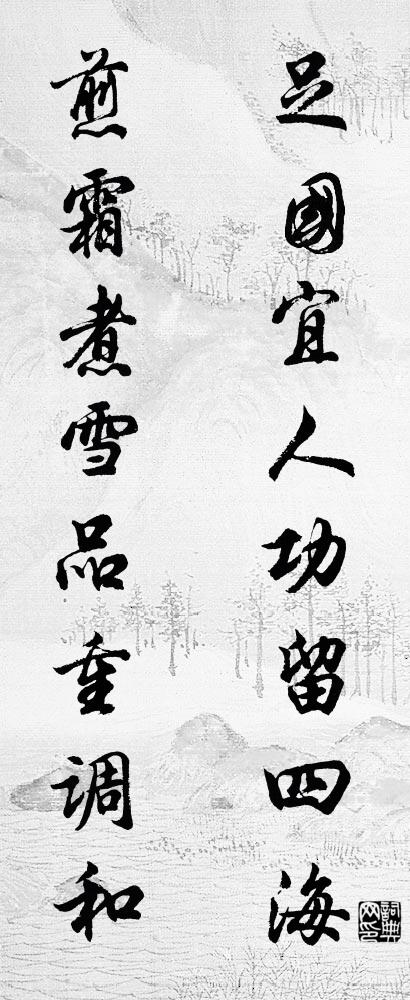 足國宜人功留四海
煎霜煮雪品重调和
詞典
网印